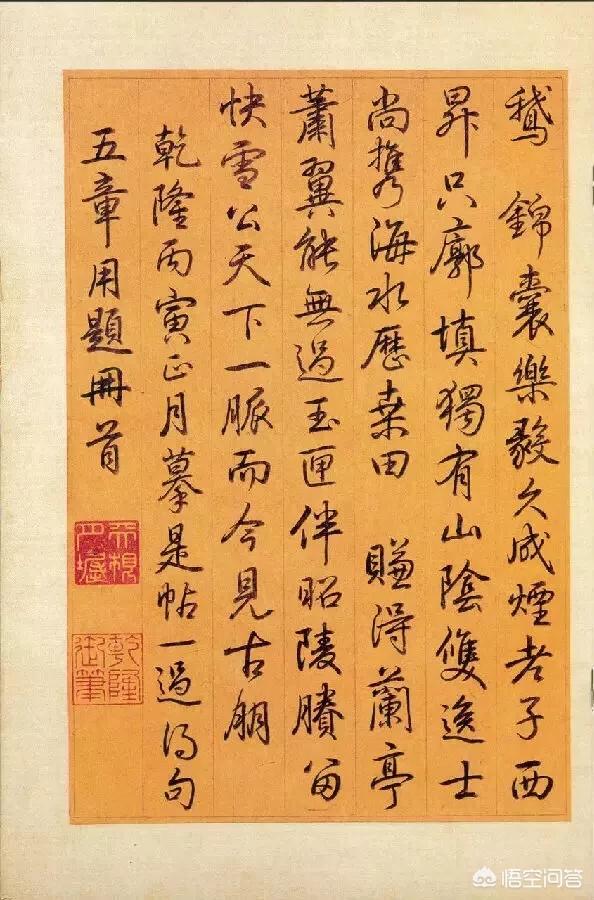 鵝 錦囊樂毅久成煙老子西
昇只廓填獨有山陰雙逸士
尚携海水歷桒田 賺得蘭亭
蕭翼能無過玉匣伴昭陵賸留
快雪公天下一脈而今見古朋
乾隆丙寅正月摹是帖一過得句
五章用題冊首
乾隆御筆
悟空问答